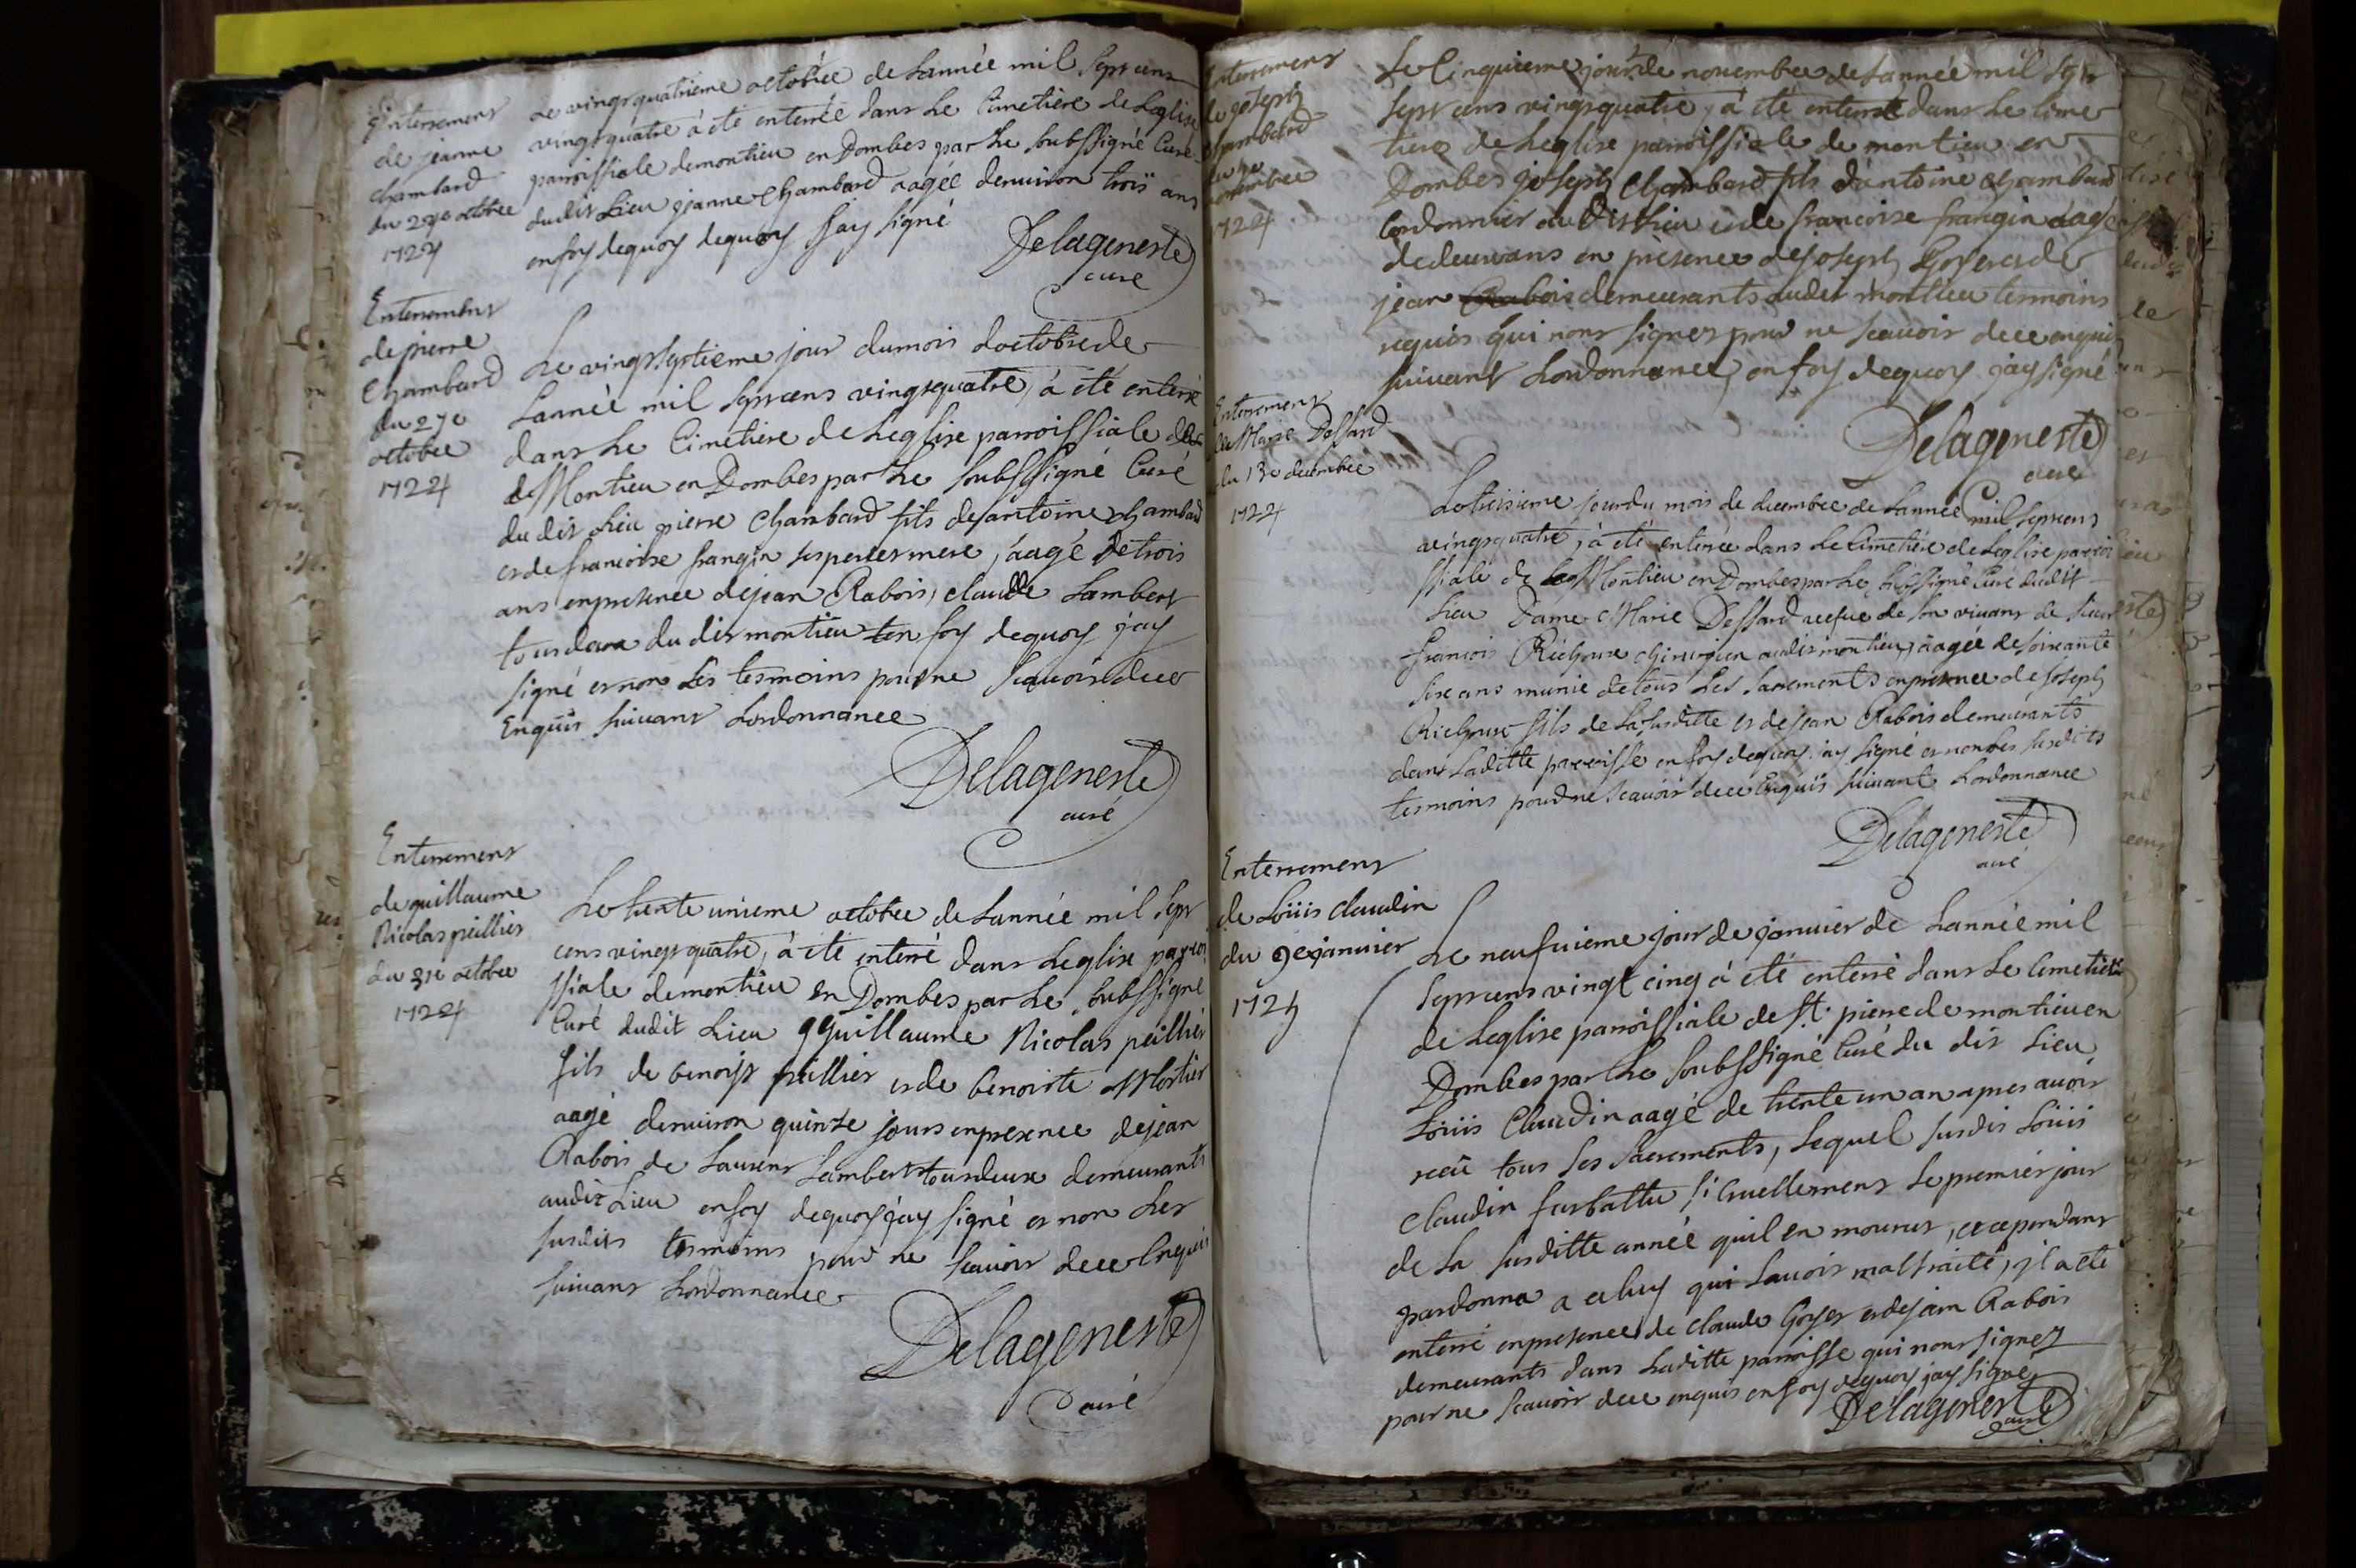 Enterrement
de jeanne
chambard
du 24e octobre
1724
Le vingt quatrieme octobre de Lannée mil sept cens
vingt quatre à été enterrée dans Le Cimetiere de Leglise
parroissiale de montieu en Dombes par Le soubssigné Curé
dudit Lieu jeanne Chambard aagée denuiron trois ans
en foy dequoy dequoy jay signé
Delageneste
curé
Enterrement
de pierre
Chambard
du 27e
octobre
1724
Le vingt septieme jour du mois doctobre de
Lannée mil sept cens vingt quatre, à été enterré
dans Le Cimetiere de Leglise parroissiale de
de Montieu en Dombes par Le soubssigné Curé
du dit Lieu pierre Chambard fils de antoine chambard
et de francoise frangin ses pere et mere, aagé de trois
ans en presence de jean Rabois, claude Lambert
tous deux du dit montieu en foy dequoy jay
signé et non Les tesmoins pour ne scauoir de ce
Enquis suiuant Lordonnance
Delageneste
curé
Enterrement
de guillaume
Nicolas peillier
du 31e octobre
1724
Le trente unieme octobre de Lannée mil sept
cens vingt quatre, à été enterré dans Leglise parroi
ssiale de montieu en Dombes par Le soubssigné
Curé dudit Lieu Guillaume Nicolas peillier
fils de benoist peillier et de benoiste Mortier
aagé denuiron quinze jours en presence de jean
Rabois de Laurens Lambert tous deux demeurants
audit Lieu en foy dequoy jay signé et non Les
susdits tesmoins pour ne scauoir de ce Enquis
suiuant Lordonnance
Delageneste
curé
Enterrement
de joseph
chambard
du 5e
nouembre
1724
Le Cinquieme jour de nouembre de Lannée mil sept
sept cens vingt quatre, à été enterré dans Le cime
tiere de Leglise parroissiale de montieu en
Dombes joseph Chambard fils dantoine chambard
Cordonnier au Dit Lieu et de francoise frangin aagé
de deux ans en presence de joseph Goyer et de
jean Rabois demeurants audit montieu tesmoins
requis qui nont signer pour ne scauoir de ce enquis
suiuant Lordonnance, en foy dequoy jay signé
Delageneste
curé
Enterrement
de Marie Dessard
du 13e decembre
1724
Le treisieme jour du mois de decembre de Lannée mil sept cens
vingt quatre, à été enterrée dans Le Cimetiere de Leglise parroi
ssiale de Montieu en Dombes par Le soussigné Curé dudit
Lieu Dame Marie Dessard veefue de son viuant de sieur
francois Richoux chirurgien audit montieu, aagée de soixante
six ans munie de tous Les sacrements en presence de joseph
Richoux fils de La susditte et de jean Rabois demeurants
dans Laditte parroisse en foy dequoy jay signé et non Les susdits
tesmoins pour ne scauoir de ce Enquis suiuant Lordonnance
Delageneste
curé
Enterrement
de Loüis claudin
du 9e januier
1725
Le neufuieme jour de januier de Lannée mil
sept cens vingt cinq à été enterré dans Le Cimetiere
de Leglise parroissiale de St. pierre de montieu en
Dombes par Le soubssigné Curé du dit Lieu
Loüis Claudin aagé de trente un an apres auoir
receü tous Les Sacrements, Lequel susdit Loüis
Claudin fut battu si cruellement Le premier jour
de La susditte année quil en mourut, et cependant
pardonna a celuy qui Lauoit maltraité, jl a été
enterré en presence de claude Goyer et de jean Rabois
demeurants dans Laditte parroisse qui nont signer
pour ne scauoir de ce enquis en foy dequoy jay signé
Delageneste
curé